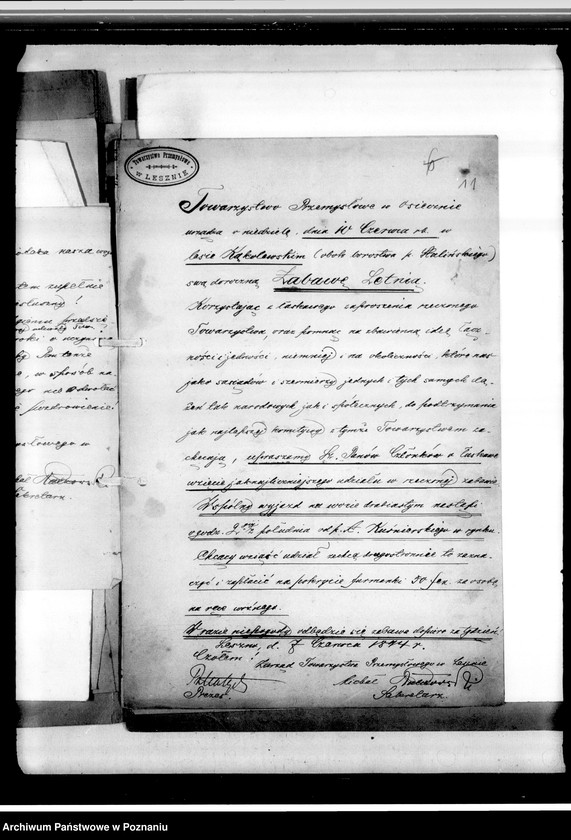 Towarzystwo Przemysłowe
W LESZNIE
11
Towarzystwo Przemysłowe w Osiecznie
urządza w niedzielę, dnia 14 Czerwca rb. w
lesie Kąkolewskim (obok borostwa p. Stalińskiego)
swą doroczną Zabawę Letnią.
Korzystając z łaskawego zaproszenia rzeczonego
Towarzystwa, oraz pomnąc na zbawienną ideę łącz-
ności i jedności, niemniej i na okoliczności, które nas
jako sąsiadów i szermierzy jednych i tych samych dą-
żeń tak narodowych jak i społecznych, do podtrzymania
jak najlepszej komitywy z tymże Towarzystwem za-
chęcają, upraszamy Sz. Panów Członków o łaskawe
wzięcie jaknajliczniejszego udziału w rzeczonej zabawie.
Wspólny wyjazd na wozie drabiastym nastąpi
o godz. 2 południa od p. Kuśnierskiego w rynku.
Chcący wziąść udział zechcą to zazna-
czyć i zapłacić na pokrycie furmanki 50 fen. za osobę
na ręce woźnego.
W razie niepogody odbędzie się zabawa dopiero za tydzień.
Leszno, d. 7 Czerwca 1914 r.
Czołem!
Zarząd Towarzystwa Przemysłowego w Lesznie
Michał
Prezes. Sekretarz.
Archiwum Państwowe w Poznaniu